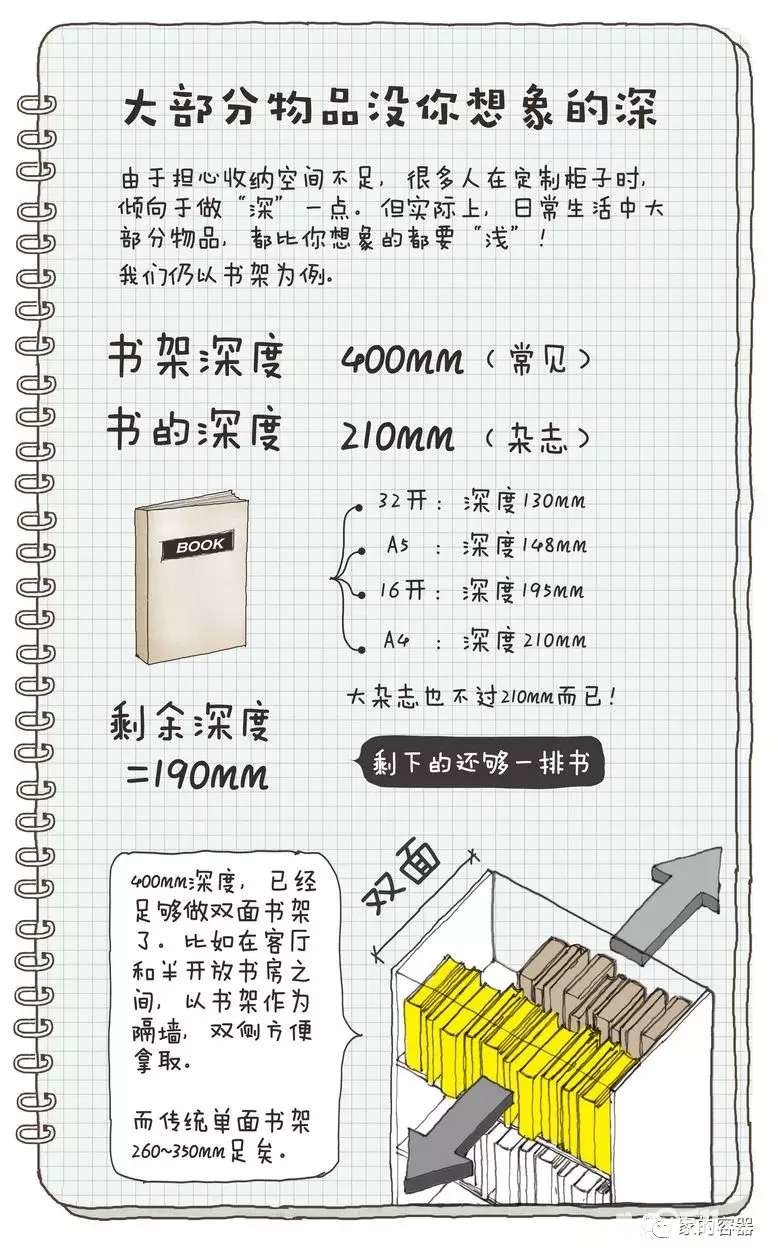 大部分物品没你想象的深
由于担心收纳空间不足，很多人在定制柜子时，
倾向于做“深”一点。但实际上，日常生活中大
部分物品，都比你想象的都要“浅”！
我们仍以书架为例。
书架深度 400mm（常见）
书的深度 210mm（杂志）
BOOK
32开：深度130mm
A5：深度148mm
16开：深度195mm
A4：深度210mm
大杂志也不过210mm而已！
剩余深度
=190mm
剩下的还够一排书
400mm深度，已经
足够做双面书架
了。比如在客厅
和半开放书房之
间，以书架作为
隔墙，双侧方便
拿取。
而传统单面书架
260~350mm足矣。
双面
家的容器